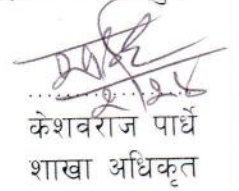 केशवराज पार्धे
शाखा अधिकृत